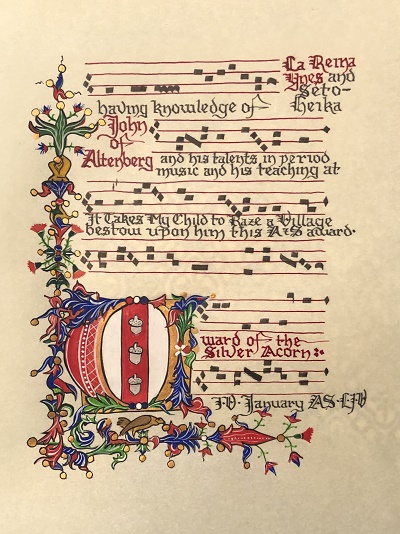 La Reina
Ynes and
Seto-
Heika
having knowledge of
John
of
Altenberg
and his talents in period
music and his teaching at
It Takes My Child to Raze a Village
bestow upon him this A&S award.
ward of the
Silver Acorn:
IV January AS LIV